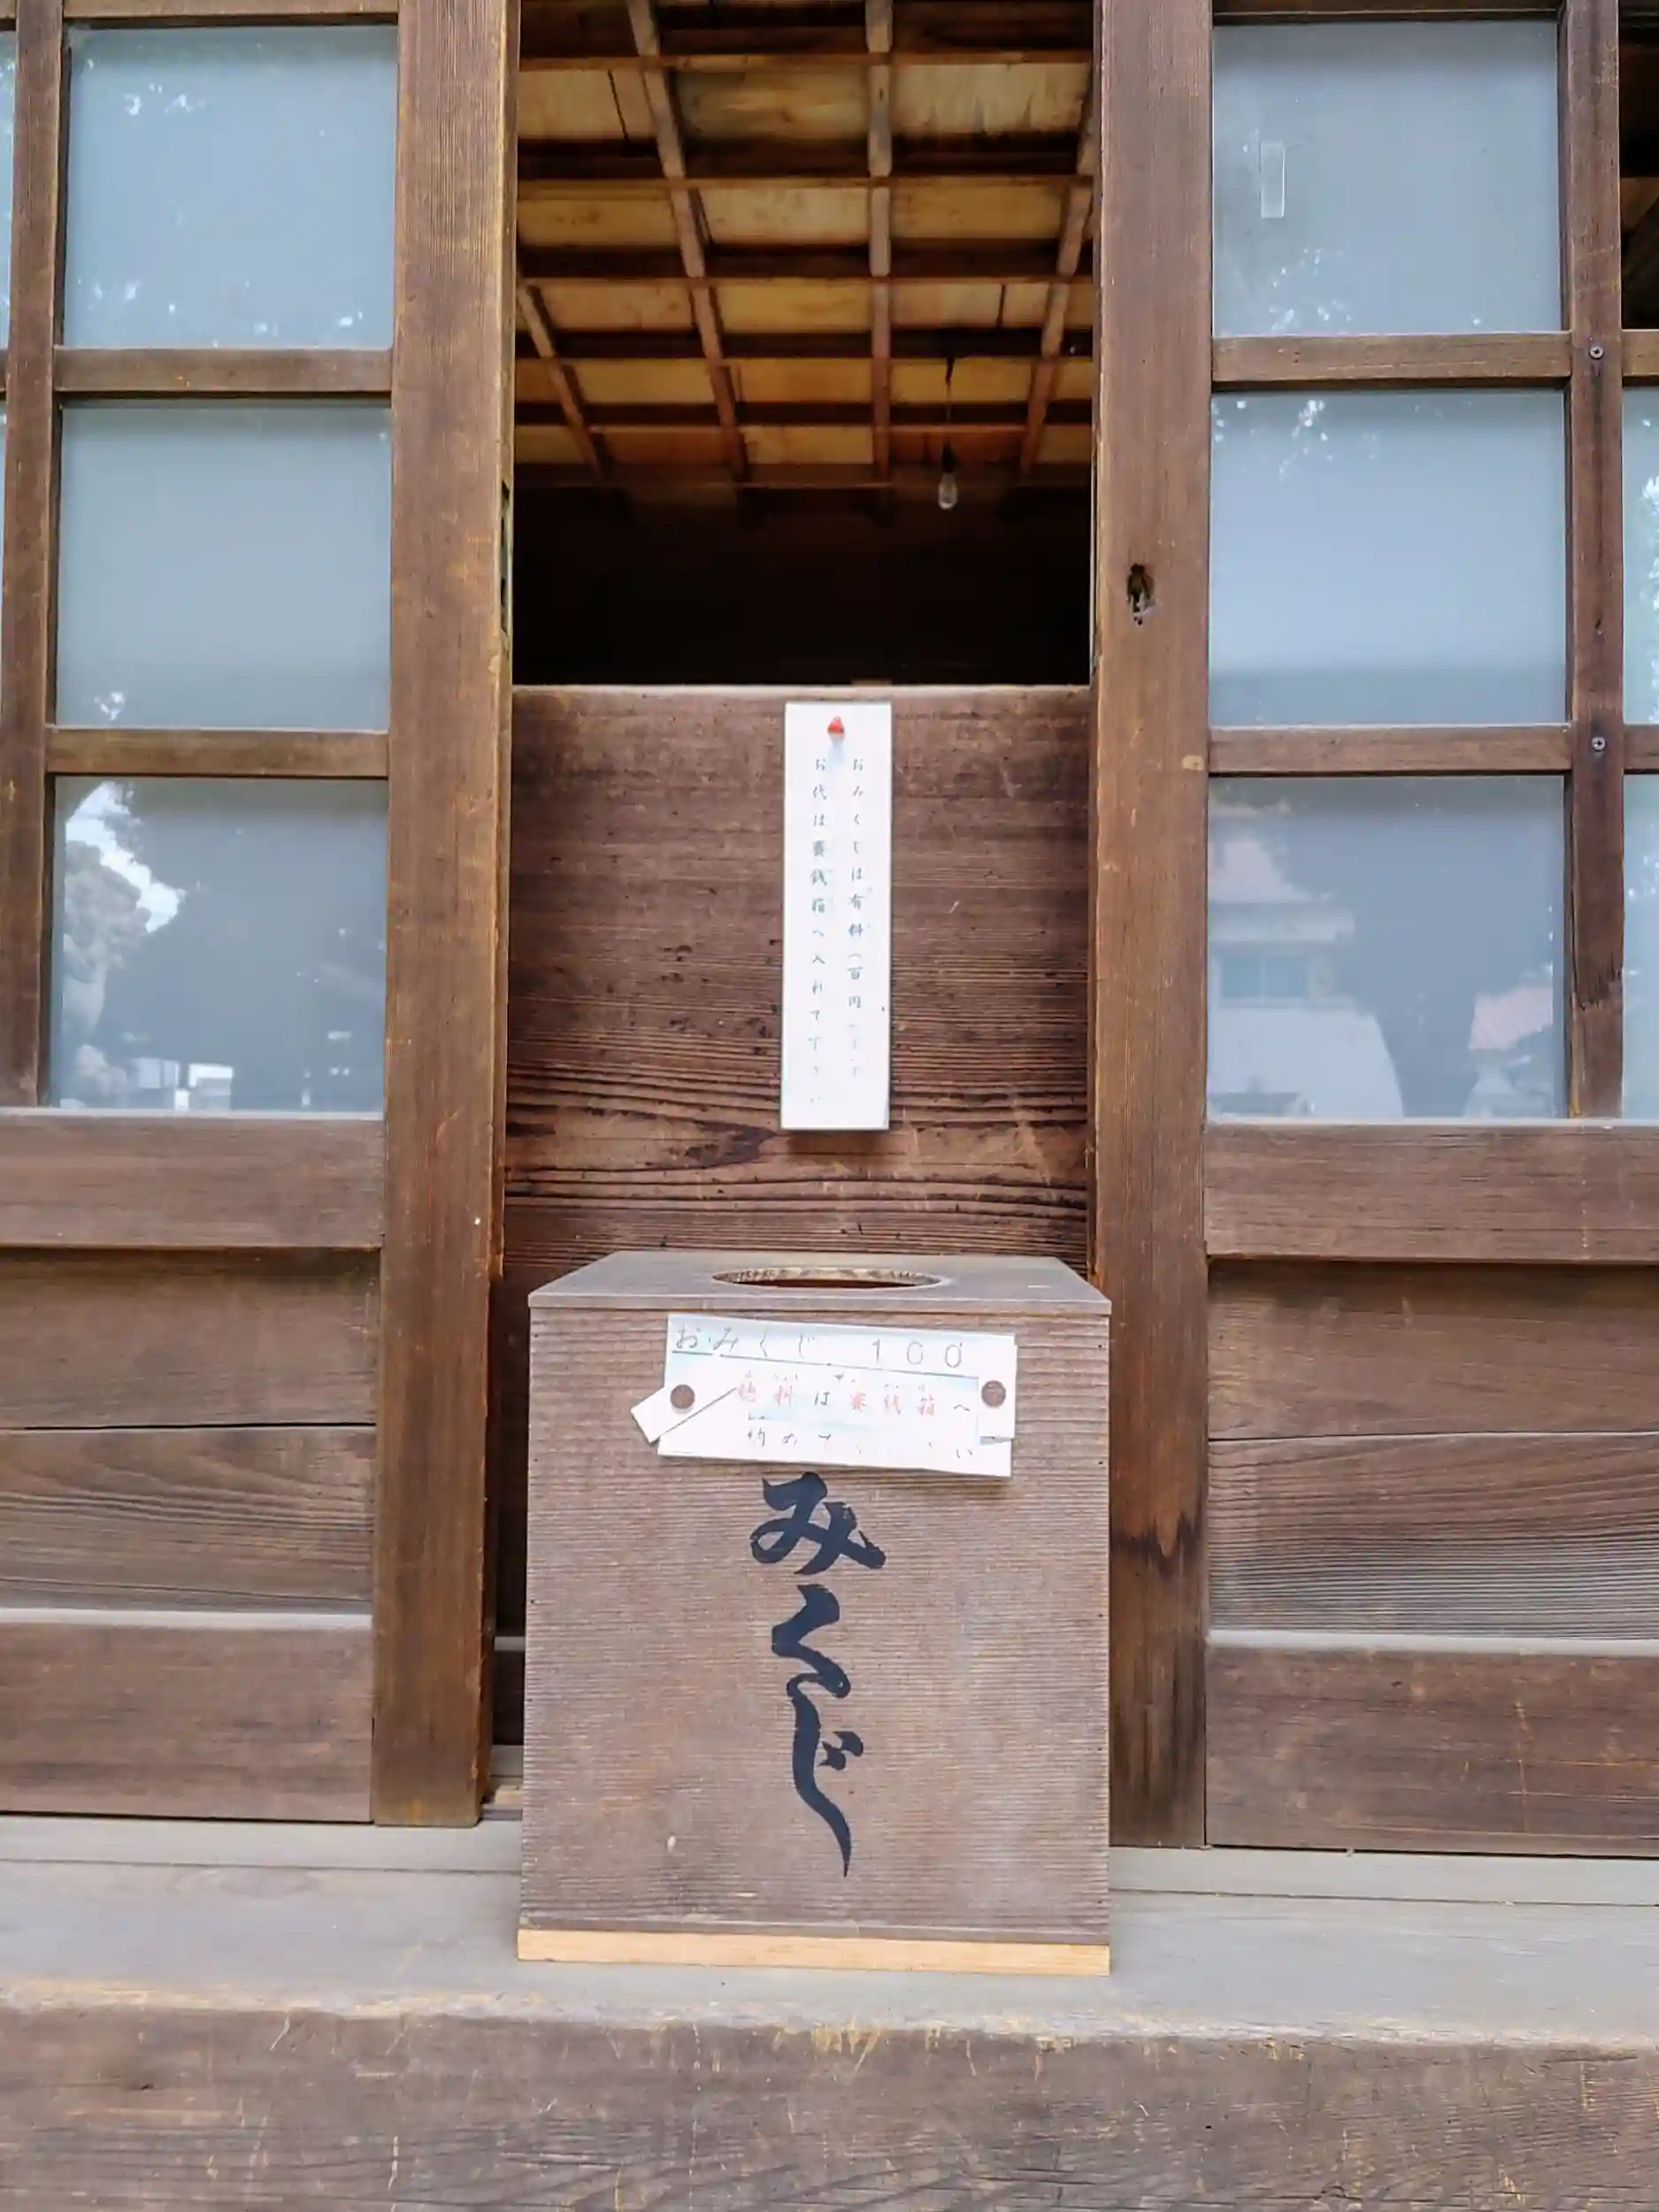 おみくじは有料(百円)です
お代は賽銭箱へ入れて下さい
おみくじ 100
は賽銭箱へ
納めてください
みくじ